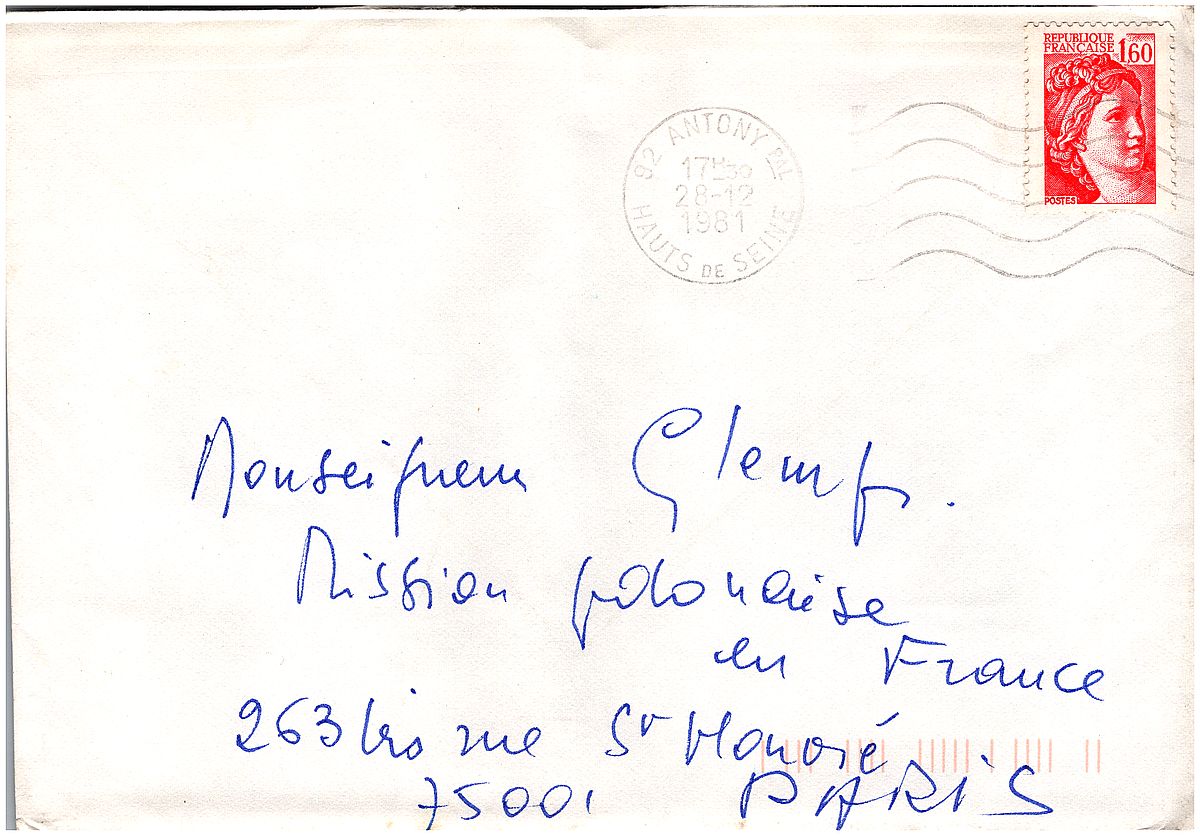 REPUBLIQUE
FRANÇAISE 1,60
POSTES
92 ANTONY PAL
17H30
28-12
1981
HAUTS DE SEINE
Monseigneur Glemp.
Mission polonaise
en France
263 bis rue St Honoré
75001 PARIS